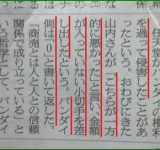 を過って侵害」
たという。
おわびにきた
山内さんが「こちらが一方
的に悪かった」と言い、金額
が入っていない小切手を差
し出したという。バンダイ
側は「０」と書いて返した。
商売は人と人との信頼
関係で成り立っている」と